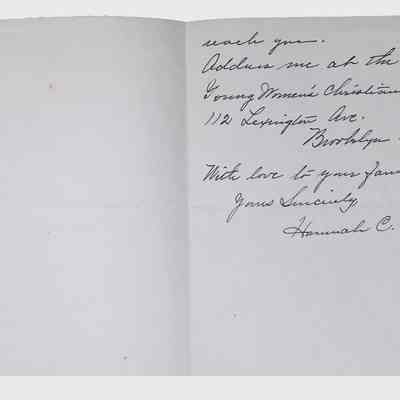 reach you.
Address me at the
Young Women's Christian
112 Lexington Ave.
Brooklyn
With love to your fam
Yours Sincerely,
Hannah C.